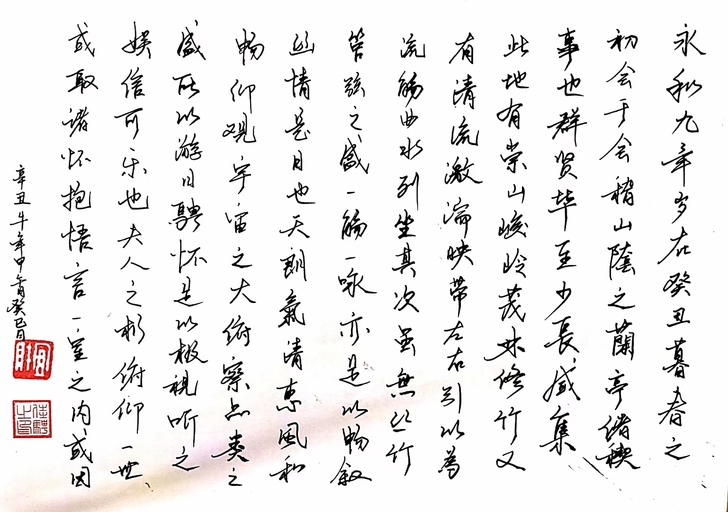 永和九年岁在癸丑暮春之
初会于会稽山蔭之蘭亭脩禊
事也群贤毕至少長咸集
此地有崇山峻岭茂林修竹又
有清流激湍映带左右引以為
流觞曲水列坐其次虽無丝竹
管弦之盛一觞一咏亦足以畅叙
幽情是日也天朗氣清惠風和
畅仰观宇宙之大俯察品类之
盛所以游目骋怀足以极视听之
娱信可乐也夫人之相俯仰一世
或取诸怀抱悟言一室之内或因
辛丑牛年甲午月癸巳日